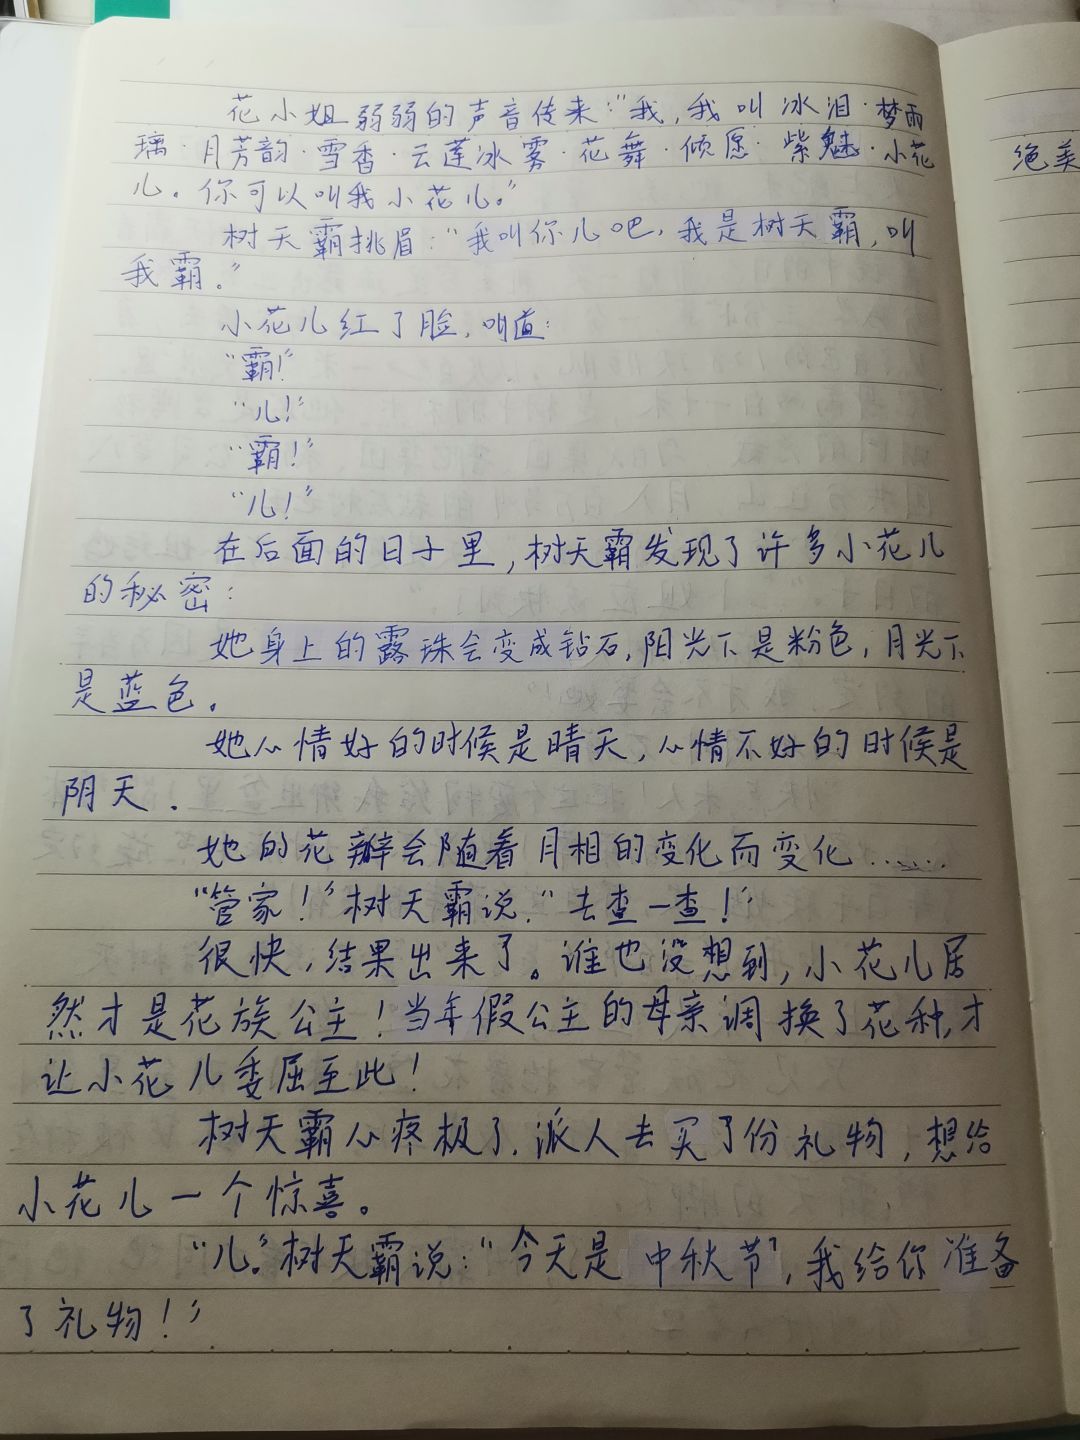 花小姐弱弱的声音传来：“我，我叫冰泪·梦雨
璃·月芳韵·雪香·云莲冰雾·花舞·倾愿·紫魅·小花
儿。你可以叫我小花儿。”
绝美
树天霸挑眉：“我叫你儿吧，我是树天霸，叫
我霸。”
小花儿红了脸，叫道：
“霸！”
“儿！”
“霸！”
“儿！”
在后面的日子里，树天霸发现了许多小花儿
的秘密：
她身上的露珠会变成钻石，阳光下是粉色，月光下
是蓝色。
她心情好的时候是晴天，心情不好的时候是
阴天．
她的花瓣会随着月相的变化而变化……
“管家！”树天霸说．“去查一查！”
很快，结果出来了。谁也没想到，小花儿居
然才是花族公主！当年假公主的母亲调换了花种，才
让小花儿委屈至此！
树天霸心疼极了．派人去买了份礼物，想给
小花儿一个惊喜。
“儿。”树天霸说：“今天是中秋节，我给你准备
了礼物！”